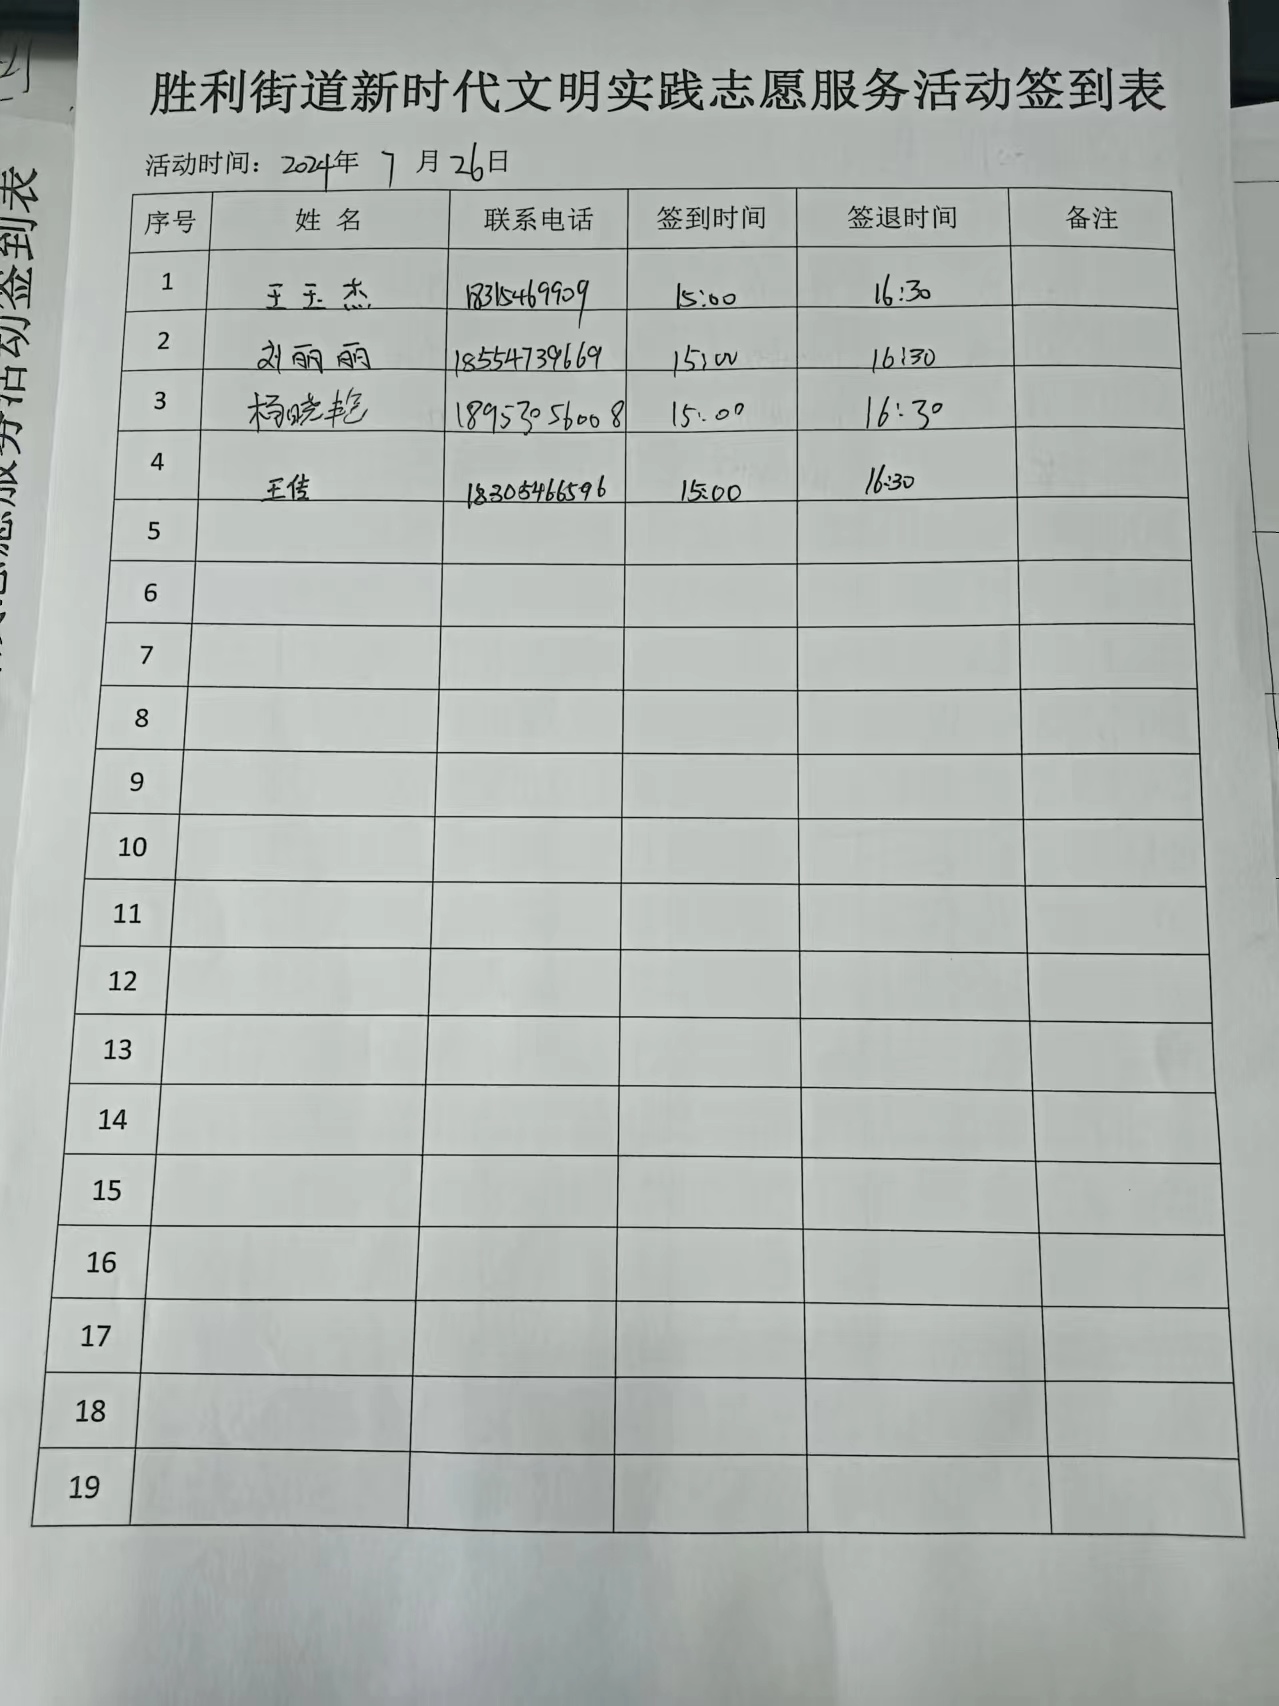 胜利街道新时代文明实践志愿服务活动签到表
活动时间：2024年 7 月 26日
序号 姓 名 联系电话 签到时间 签退时间 备注
1 王玉杰 18315469909 15:00 16:30
2 刘丽丽 18554739669 15:00 16:30
3 杨晓艳 18953056008 15:00 16:30
4 王佳 18305466596 15:00 16:30
5
6
7
8
9
10
11
12
13
14
15
16
17
18
19